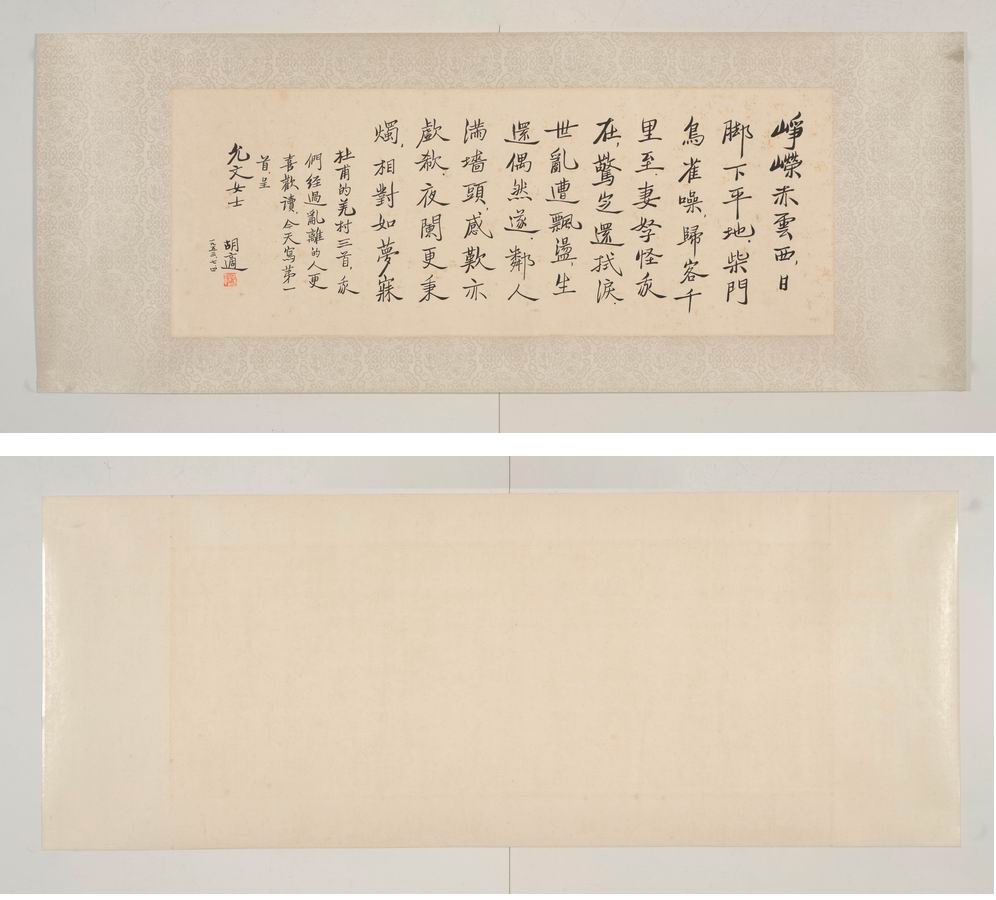 崢嶸赤雲西,日
脚下平地.柴門
鳥雀噪,歸客千
里至.妻孥怪我
在,驚定還拭淚.
世亂遭飄盪,生
還偶然遂.鄰人
滿墻頭,感歎亦
歔欷.夜闌更秉
燭,相對如夢寐
杜甫的羌村三首,我
們經過亂離的人更
喜歡讀.今天寫第一
首,呈
允文女士
胡適